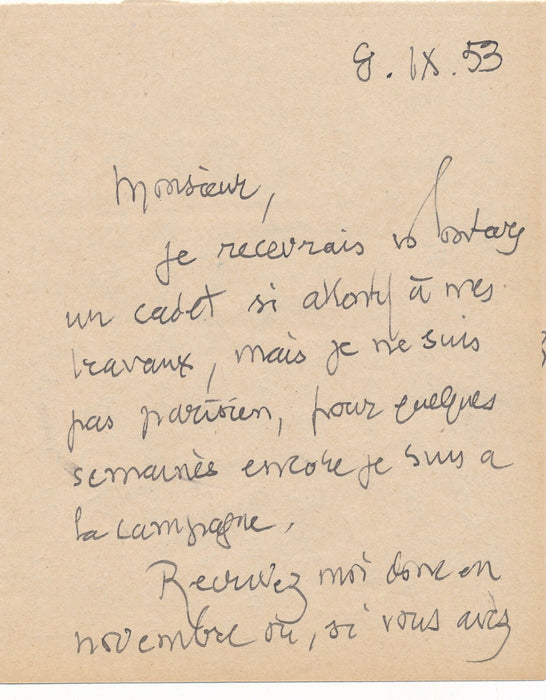 8. IX. 53
Monsieur,
je recevrais volontiers
un cadet si attentif à mes
travaux, mais je ne suis
pas parisien, pour quelques
semaines encore je suis a
la campagne.
Recrivez moi donc en
novembre où, si vous avez